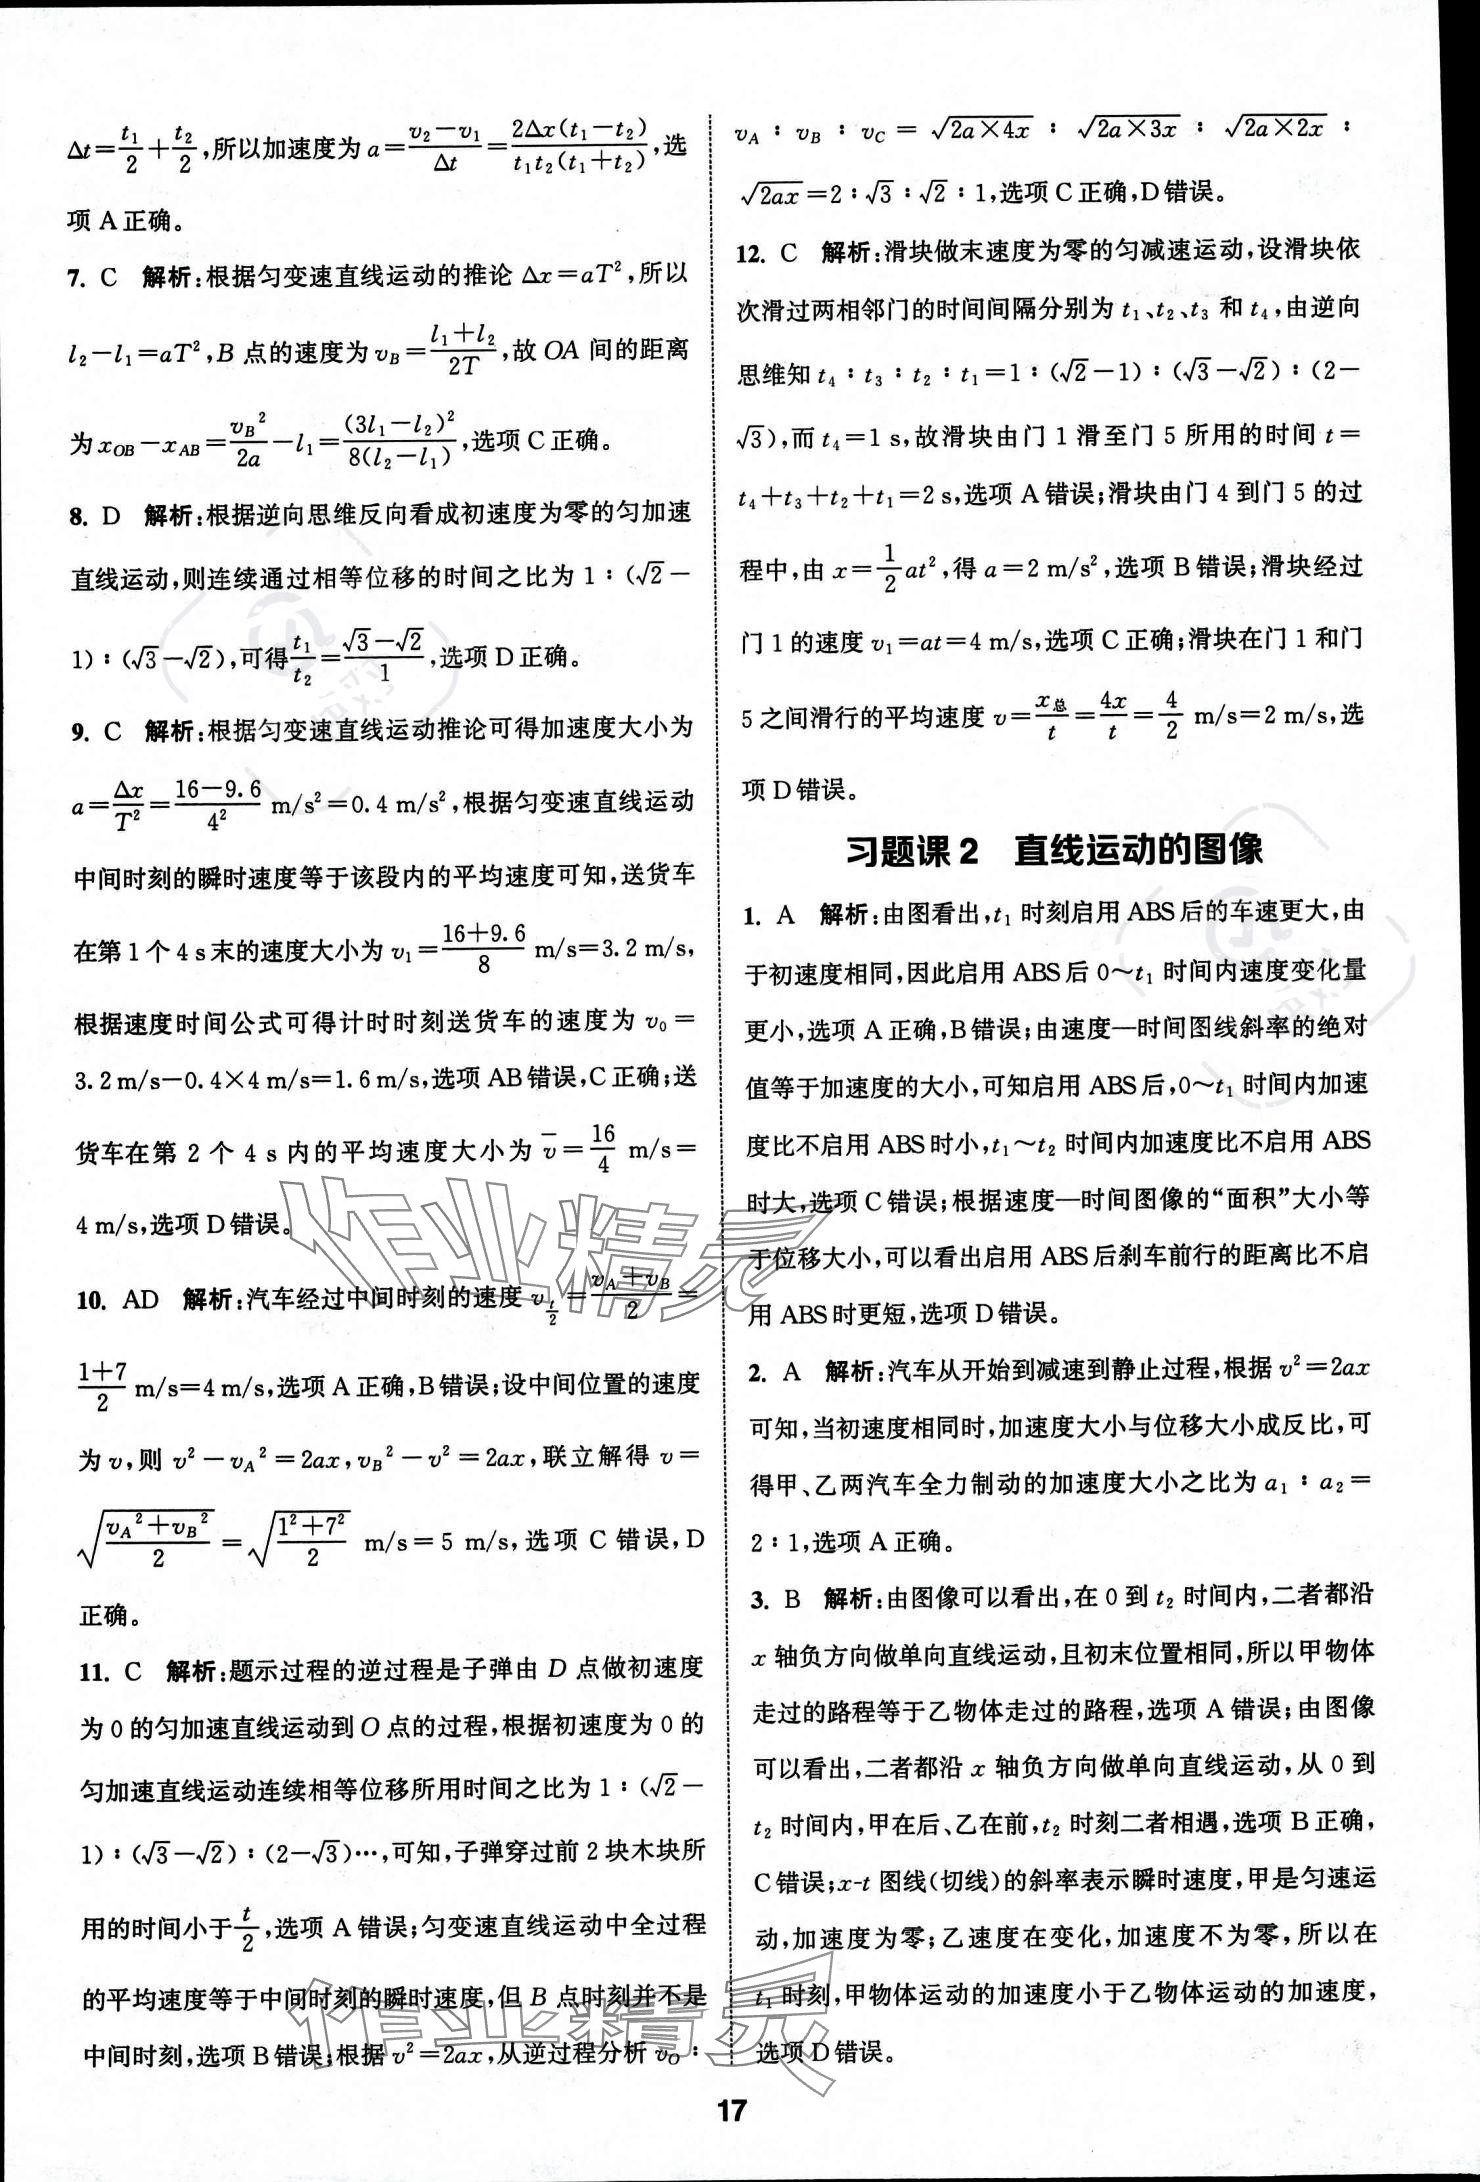 Δt=t₁/2+t₂/2,所以加速度为 a=(v₂-v₁)/Δt=2Δx(t₁-t₂)/t₁t₂(t₁+t₂),选
项 A 正确。
7. C 解析:根据匀变速直线运动的推论 Δx=aT²,所以
l₂-l₁=aT²,B 点的速度为 v_B=(l₁+l₂)/2T,故 OA 间的距离
为 x_OB-x_AB=v_B²/2a-l₁=(3l₁-l₂)²/8(l₂-l₁),选项 C 正确。
8. D 解析:根据逆向思维反向看成初速度为零的匀加速
直线运动,则连续通过相等位移的时间之比为 1∶(√2-
1)∶(√3-√2),可得t₁/t₂=(√3-√2)/1,选项 D 正确。
9. C 解析:根据匀变速直线运动推论可得加速度大小为
a=Δx/T²=(16-9.6)/4² m/s²=0.4 m/s²,根据匀变速直线运动
中间时刻的瞬时速度等于该段内的平均速度可知,送货车
在第 1 个 4 s 末的速度大小为 v₁=(16+9.6)/8 m/s=3.2 m/s,
根据速度时间公式可得计时时刻送货车的速度为 v₀=
3.2 m/s-0.4×4 m/s=1.6 m/s,选项 AB 错误,C 正确;送
货车在第 2 个 4 s 内的平均速度大小为 v̄=16/4 m/s=
4 m/s,选项 D 错误。
10. AD 解析:汽车经过中间时刻的速度 v_(t/2)=(v_A+v_B)/2=
(1+7)/2 m/s=4 m/s,选项 A 正确,B 错误;设中间位置的速度
为 v,则 v²-v_A²=2ax,v_B²-v²=2ax,联立解得 v=
√((v_A²+v_B²)/2)=√((1²+7²)/2) m/s=5 m/s,选项 C 错误,D
正确。
11. C 解析:题示过程的逆过程是子弹由 D 点做初速度
为 0 的匀加速直线运动到 O 点的过程,根据初速度为 0 的
匀加速直线运动连续相等位移所用时间之比为 1∶(√2-
1)∶(√3-√2)∶(2-√3)…,可知,子弹穿过前 2 块木块所
用的时间小于t/2,选项 A 错误;匀变速直线运动中全过程
的平均速度等于中间时刻的瞬时速度,但 B 点时刻并不是
中间时刻,选项 B 错误;根据 v²=2ax,从逆过程分析 v_O∶
v_A∶v_B∶v_C=√(2a×4x)∶√(2a×3x)∶√(2a×2x)∶
√(2ax)=2∶√3∶√2∶1,选项 C 正确,D 错误。
12. C 解析:滑块做末速度为零的匀减速运动,设滑块依
次滑过两相邻门的时间间隔分别为 t₁、t₂、t₃ 和 t₄,由逆向
思维知 t₄∶t₃∶t₂∶t₁=1∶(√2-1)∶(√3-√2)∶(2-
√3),而 t₄=1 s,故滑块由门 1 滑至门 5 所用的时间 t=
t₄+t₃+t₂+t₁=2 s,选项 A 错误;滑块由门 4 到门 5 的过
程中,由 x=1/2at²,得 a=2 m/s²,选项 B 错误;滑块经过
门 1 的速度 v₁=at=4 m/s,选项 C 正确;滑块在门 1 和门
5 之间滑行的平均速度 v=x总/t=4x/t=4/2 m/s=2 m/s,选
项 D 错误。
习题课 2 直线运动的图像
1. A 解析:由图看出,t₁ 时刻启用 ABS 后的车速更大,由
于初速度相同,因此启用 ABS 后 0～t₁ 时间内速度变化量
更小,选项 A 正确,B 错误;由速度—时间图线斜率的绝对
值等于加速度的大小,可知启用 ABS 后,0～t₁ 时间内加速
度比不启用 ABS 时小,t₁～t₂ 时间内加速度比不启用 ABS
时大,选项 C 错误;根据速度—时间图像的“面积”大小等
于位移大小,可以看出启用 ABS 后刹车前行的距离比不启
用 ABS 时更短,选项 D 错误。
2. A 解析:汽车从开始到减速到静止过程,根据 v²=2ax
可知,当初速度相同时,加速度大小与位移大小成反比,可
得甲、乙两汽车全力制动的加速度大小之比为 a₁∶a₂=
2∶1,选项 A 正确。
3. B 解析:由图像可以看出,在 0 到 t₂ 时间内,二者都沿
x 轴负方向做单向直线运动,且初末位置相同,所以甲物体
走过的路程等于乙物体走过的路程,选项 A 错误;由图像
可以看出,二者都沿 x 轴负方向做单向直线运动,从 0 到
t₂ 时间内,甲在后、乙在前,t₂ 时刻二者相遇,选项 B 正确,
C 错误;x-t 图线(切线)的斜率表示瞬时速度,甲是匀速运
动,加速度为零;乙速度在变化,加速度不为零,所以在
t₁ 时刻,甲物体运动的加速度小于乙物体运动的加速度,
选项 D 错误。
17
作业精灵
作业精灵